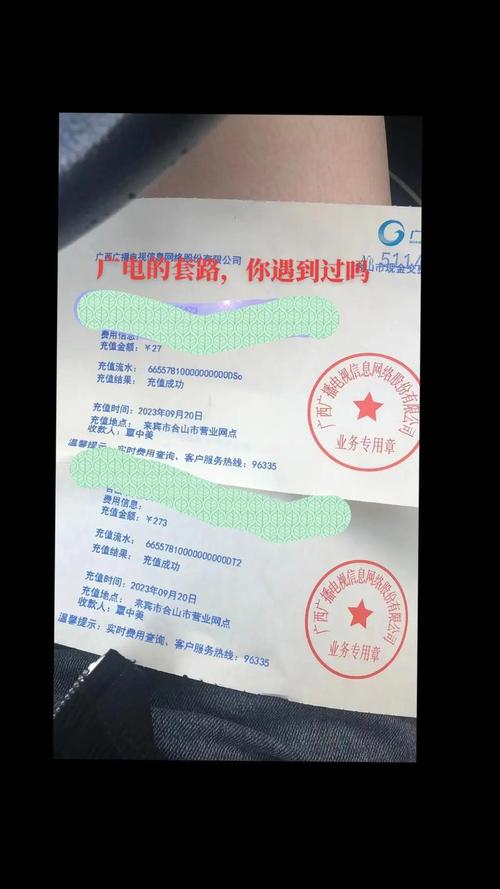 广
广西广播电视信息网络股份有限公司
№ 511
合山市现金交
广电的套路，你遇到过吗
费用信息：
充值金额：￥27
充值流水： 66557810000000000DSo
充值结果： 充值成功
充值时间：2023年09月20日
充值地点： 来宾市合山市营业网点
收款人：覃中美
温馨提示：实时费用查询、客户服务热线：96335
广西广播电视信息网络股份有限公司
业务专用章
费用信息：
充值金额：￥273
充值流水： 66557810000000000DT2
充值结果： 充值成功
充值时间：2023年09月20日
充值地点： 来宾市合山市营业网点
收款人：覃中美
温馨提示：实时费用查询、客户服务热线：96335
广西广播电视信息网络股份有限公司
业务专用章